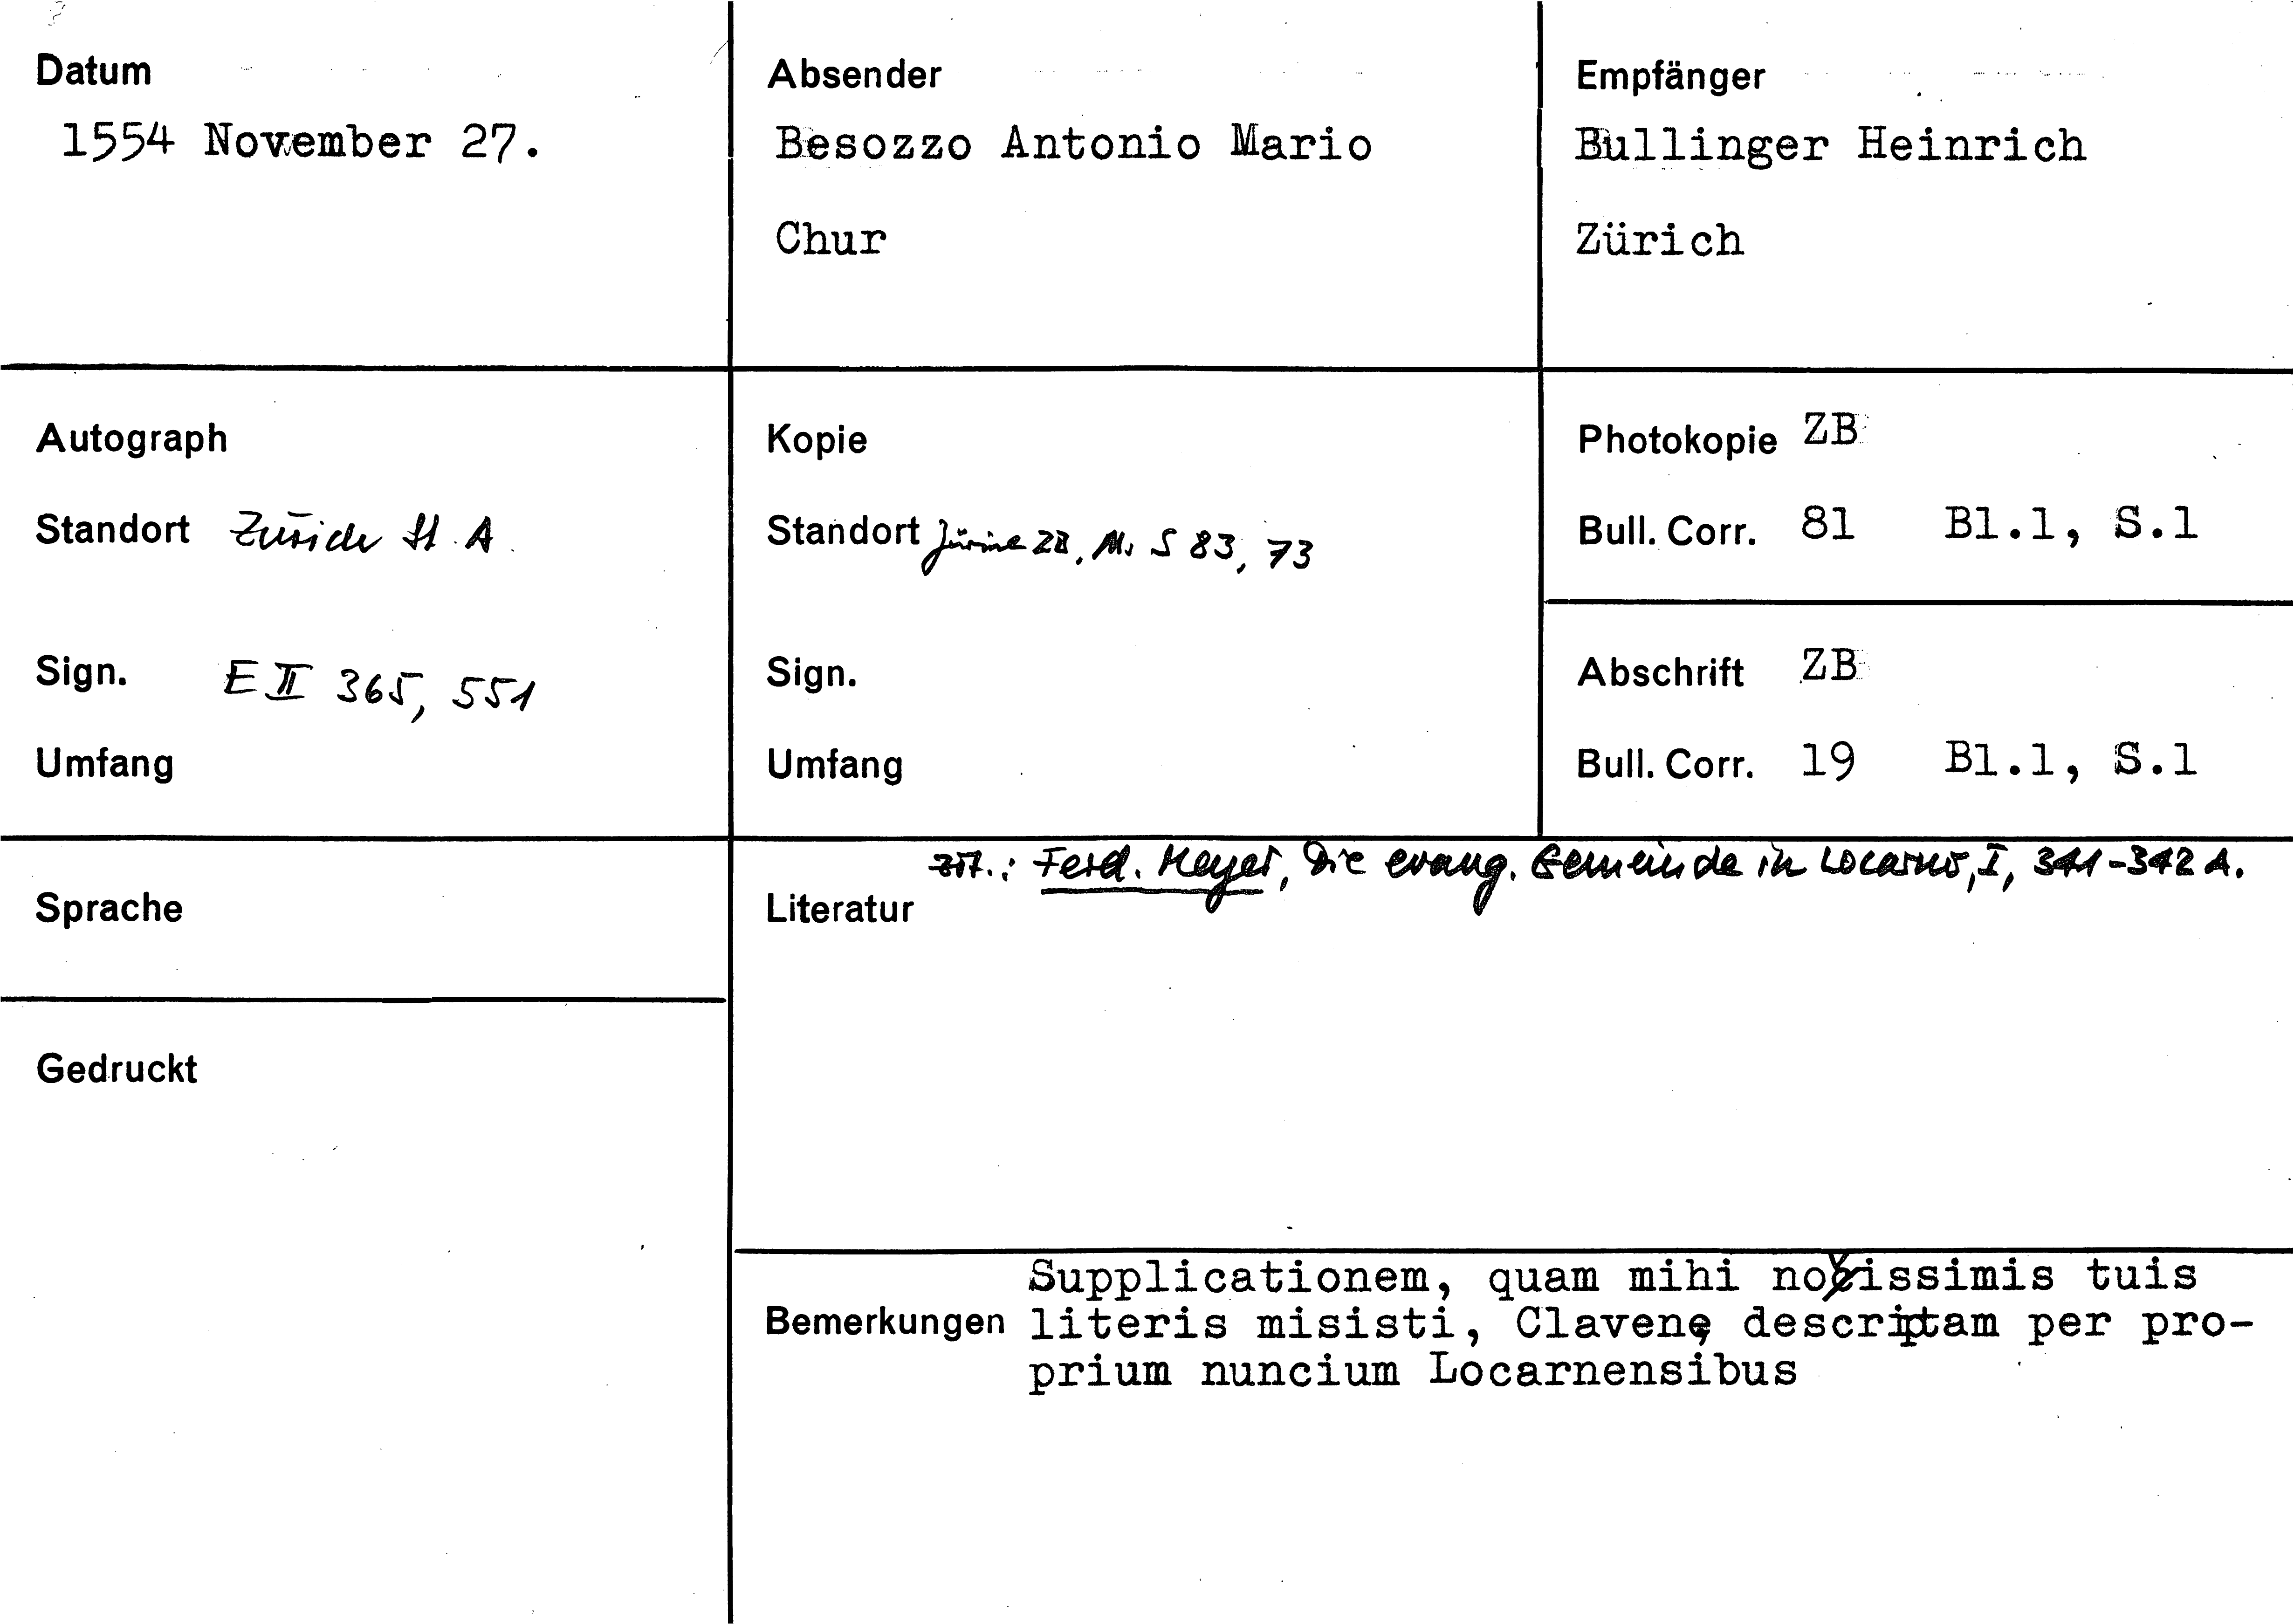 Datum
1554 November 27.
Absender
Besozzo Antonio Mario
Chur
Empfänger
Bullinger Heinrich
Zürich
Autograph
Standort Zürich St. A.
Sign. E II 365, 551
Umfang
Kopie
Standort Zürich ZB, Ms S 83, 73
Sign.
Umfang
Photokopie ZB
Bull. Corr. 81 Bl.1, S.1
Abschrift ZB
Bull. Corr. 19 Bl.1, S.1
Sprache
Gedruckt
zit.: Ferd. Meyer, Die evang. Gemeinde in Locarno, I, 341-342 A.
Literatur
Supplicationem, quam mihi novissimis tuis
Bemerkungen literis misisti, Clavenę descriptam per pro-
prium nuncium Locarnensibus